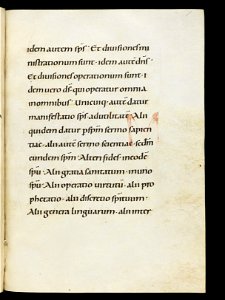 idem autem sps. Et diuisiones mi
nistrationum sunt. idem aute dns.
Et diuisiones operationum sunt. i
dem uero ds. qui operatur omnia
in omnibus. Unicuiq; aute datur
manifestatio sps ad utilitate. Alii
quidem datur p spm sermo sapien
tiae. alii aute sermo scientiae. sedm
eundem spm. Alteri fides. in eode
spu. Alii gratia sanitatum. in uno
spu. Alii operatio uirtutu. alii pro
phetatio. alii discretio spirituum.
Alii genera linguarum. alii inter